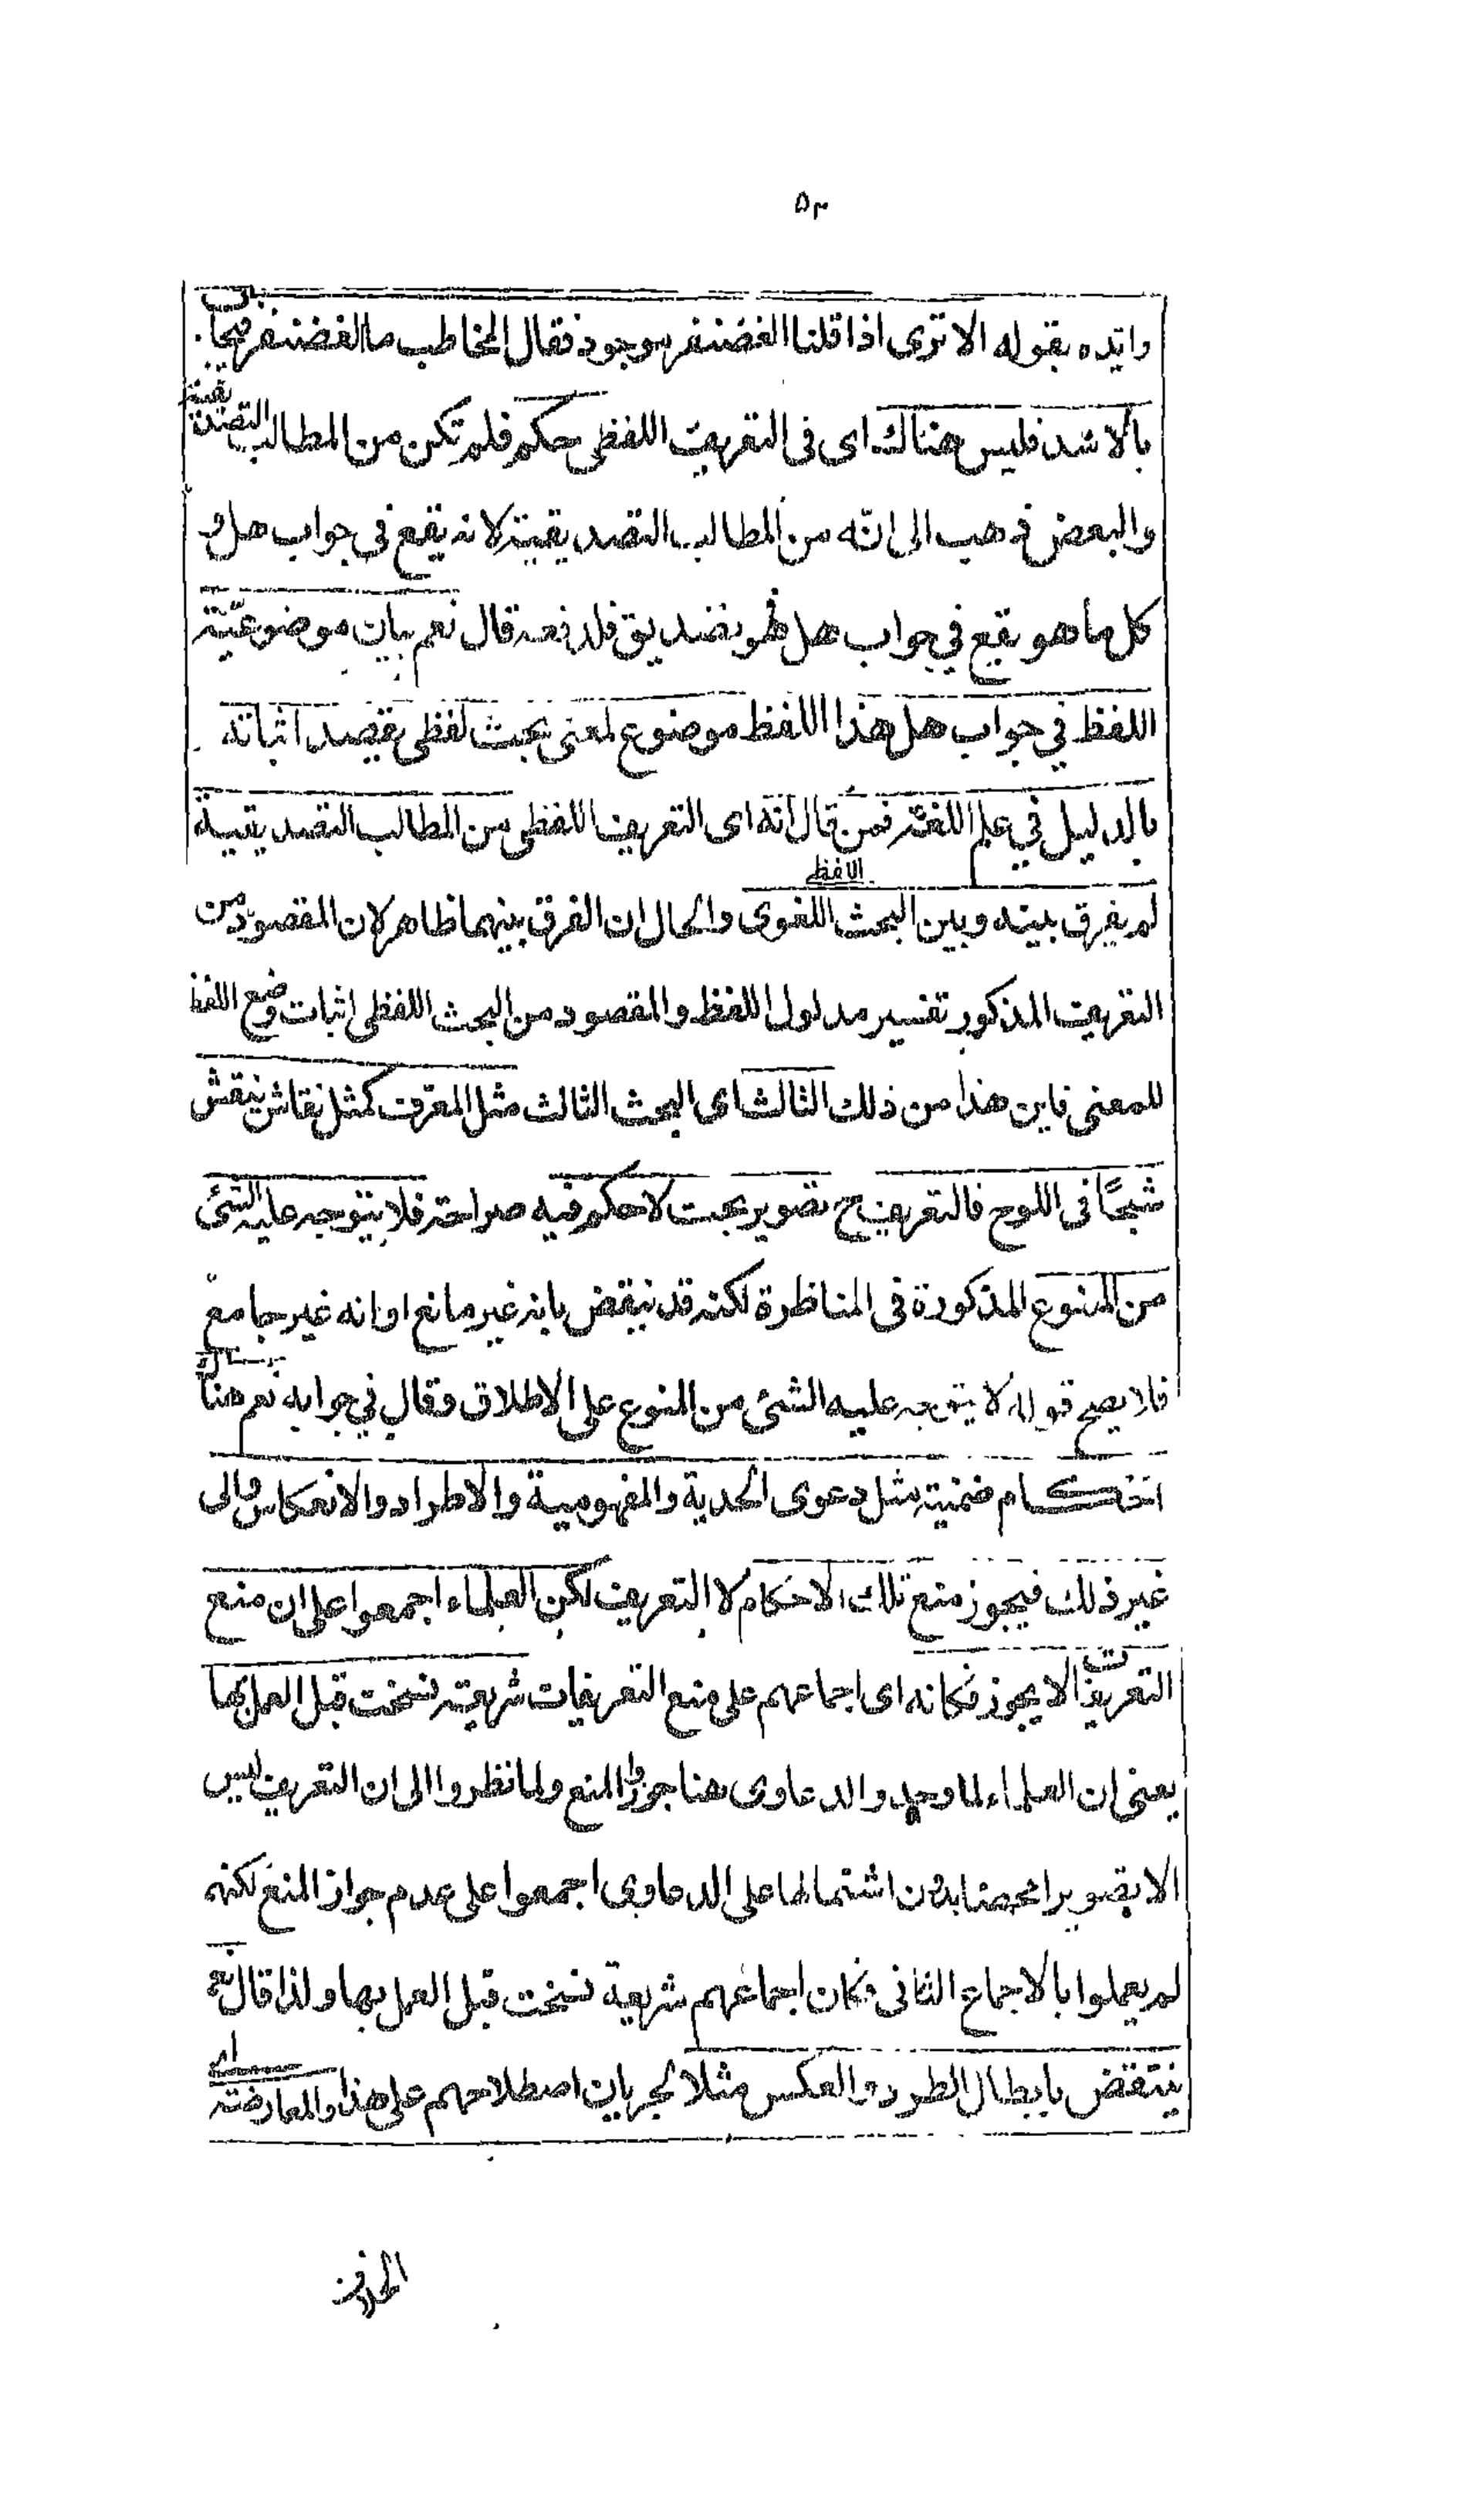 ٥٣
وايّده بقوله الا ترى اذا قلنا الغضنفر موجود فقال المخاطب ما الغضنفر فيجاب
بالاسد فليس هناك اى فى التعريف اللفظى حكم فلم تكن من المطالب التصديقية
والبعض ذهب الى انّه من المطالب التصديقية لانه يقع فى جواب هل و
كل ما هو يقع في جواب هل فهو تصديق فلدفعه قال نعم بيان موضوعيّة
اللفظ في جواب هل هذا اللفظ موضوع لمعنى بحث لفظى يقصد اثباته
بالدليل في علم اللغة فمن قال انّه اى التعريف اللفظى من المطالب التصديقية
اللفظى
لم يفرق بينه وبين البحث اللغوى والحال ان الفرق بينهما ظاهر لان المقصود من
التعريف المذكور تفسير مدلول اللفظ والمقصود من البحث اللفظى اثبات وضع اللفظ
للمعنى فاين هذا من ذلك الثالث اى البحث الثالث مثل المعرّف كمثل نقاش ينقش
شبحًا فى اللوح فالتعريف ح تصوير بحت لا حكم فيه صراحة فلا يتوجه عليه الشئ
من المنوع المذكورة فى المناظرة لكنه قد ينقض بانه غير مانع او انه غير جامع
فلا يصح قوله لا يتوجه عليه الشئ من المنوع على الاطلاق وقال في جوابه نعم هناك
احكام ضمنية مثل دعوى الحدية والمفهومية والاطراد والانعكاس والى
غير ذلك فيجوز منع تلك الاحكام لا التعريف لكن العلماء اجمعوا على ان منع
التعريفات لا يجوز فكانه اى اجماعهم على منع التعريفات شريعة نسخت قبل العمل بها
يعنى ان العلماء لما وجدوا الدعاوى هنا جوزوا المنع ولما نظروا الى ان التعريف ليس
الا تصويرا محضا بدون اشتمالها على الدعاوى اجمعوا على عدم جواز المنع لكنه
لم يعملوا بالاجماع الثانى فكان اجماعهم شريعة نسخت قبل العمل بها ولذا قال نعم
ينتقض بابطال الطرد والعكس مثلا لجريان اصطلاحهم على هذا والمعارضة اى